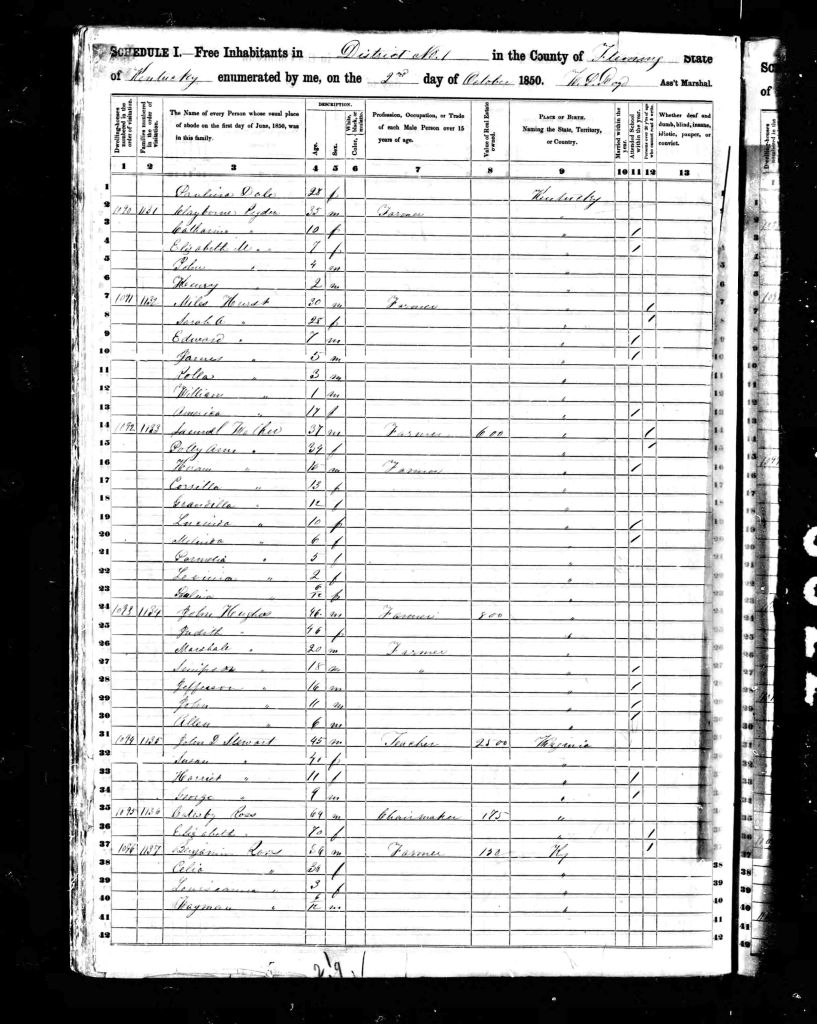 SCHEDULE I.—Free Inhabitants in District No. 1 in the County of Fleming State
of Kentucky enumerated by me, on the 2nd day of October 1850. Ass't Marshal.
Dwelling-houses numbered in the order of visitation.
Families numbered in the order of visitation.
The Name of every Person whose usual place of abode on the first day of June, 1850, was in this family.
DESCRIPTION.
Age.
Sex.
White, black, or mulatto. Color,
Profession, Occupation, or Trade of each Male Person over 15 years of age.
Value of Real Estate owned.
PLACE OF BIRTH. Naming the State, Territory, or Country.
Married within the year.
Attended School within the year.
Persons over 20 y'rs of age who cannot read & write.
Whether deaf and dumb, blind, insane, idiotic, pauper, or convict.
1 2 3 4 5 6 7 8 9 10 11 12 13
1 Dale 28 f Kentucky 1
2 1090 1131 35 m Farmer "
3 Catharine " 10 f " /
4 Elizabeth M. " 7 f " /
5 John " 4 m "
6 Henry " 2 m "
7 1091 1132 Miles Hurst 30 m Farmer " /
8 Sarah A " 28 f " /
9 Edward " 7 m " /
10 James " 5 m " /
11 " 3 m "
12 William " 1 m "
13 America " 17 f " /
14 1092 1133 Samuel 37 m Farmer 600 " /
15 Polly Ann " 34 f " /
16 Hiram " 15 m Farmer " /
17 " 13 f "
18 " 12 f "
19 Lucinda " 10 f " /
20 Melinda " 6 f " /
21 " 5 f "
22 " 2 f "
23 " 6/12 f "
24 1093 1134 John Hughes 46 m Farmer 800 "
25 Judith " 46 f "
26 Marshall " 20 m Farmer "
27 Simpson " 18 m " " /
28 Jefferson " 16 m " /
29 John " 11 m " /
30 Allen " 6 m " /
31 1094 1135 John D Stewart 45 m Teacher 2500 Virginia
32 Susan " 40 f "
33 Harriet " 11 f " /
34 George " 9 m " /
35 1095 1136 Ross 69 m Chairmaker 175 "
36 Elizabeth " 70 f " /
37 1096 1137 Benjamin Ross 56 m Farmer 150 Ky / 37
38 Celia " 30 f " 38
39 " 3 f " 39
40 Wayman " 6/12 m " 40
41 41
42 42